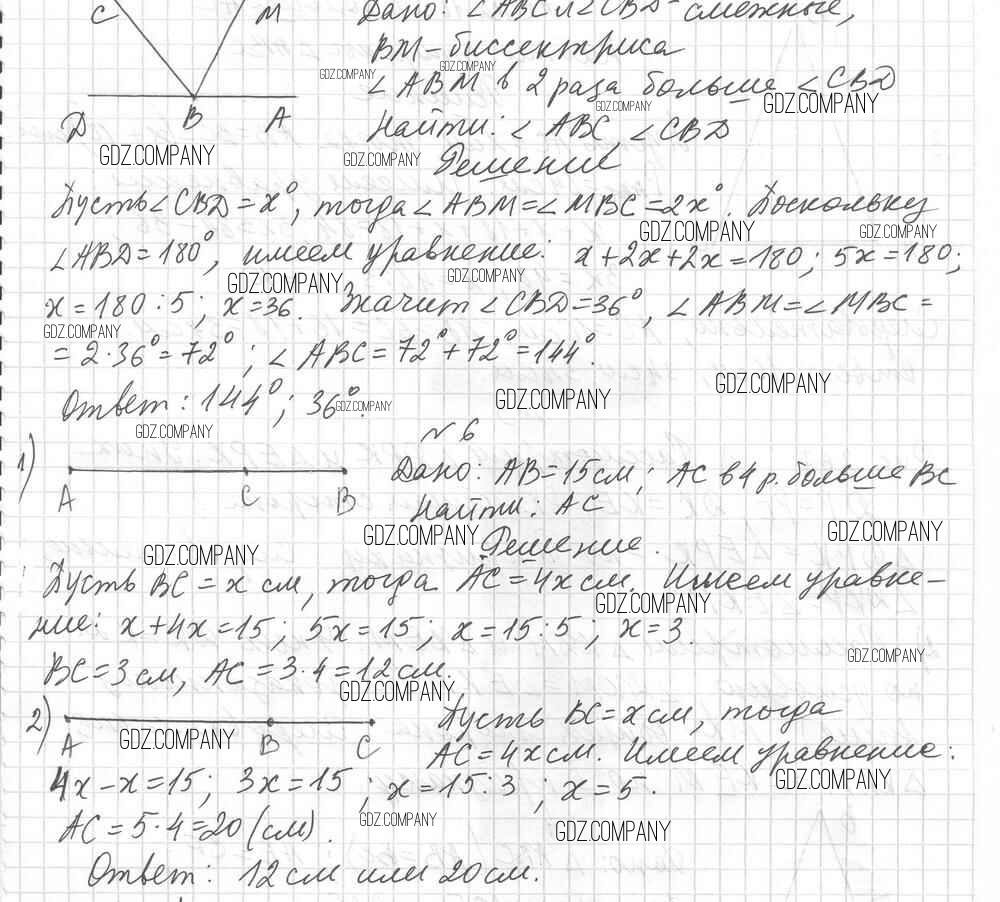 C M Дано: ∠ABC и ∠CBD - смежные,
BM - биссектриса
GDZ.COMPANY GDZ.COMPANY
∠ABM в 2 раза больше ∠CBD
GDZ.COMPANY GDZ.COMPANY
D B A Найти: ∠ABC, ∠CBD
GDZ.COMPANY GDZ.COMPANY Решение
Пусть ∠CBD = x°, тогда ∠ABM = ∠MBC = 2x°. Поскольку
GDZ.COMPANY GDZ.COMPANY
∠ABD = 180°, имеем уравнение: x + 2x + 2x = 180; 5x = 180;
GDZ.COMPANY GDZ.COMPANY
x = 180 : 5; x = 36. Значит ∠CBD = 36°, ∠ABM = ∠MBC =
GDZ.COMPANY
= 2 · 36° = 72°; ∠ABC = 72° + 72° = 144°.
GDZ.COMPANY
Ответ: 144°; 36°.
GDZ.COMPANY GDZ.COMPANY
GDZ.COMPANY № 6
1) Дано: AB = 15 см; AC в 4 р. больше BC
A C B Найти: AC
GDZ.COMPANY GDZ.COMPANY
GDZ.COMPANY Решение.
Пусть BC = x см, тогда AC = 4x см. Имеем уравне-
GDZ.COMPANY
ние: x + 4x = 15; 5x = 15; x = 15 : 5; x = 3.
GDZ.COMPANY
BC = 3 см, AC = 3 · 4 = 12 см.
GDZ.COMPANY
2) Пусть BC = x см, тогда
A GDZ.COMPANY B C AC = 4x см. Имеем уравнение:
GDZ.COMPANY
4x - x = 15; 3x = 15; x = 15 : 3; x = 5.
GDZ.COMPANY
AC = 5 · 4 = 20 (см).
GDZ.COMPANY
Ответ: 12 см или 20 см.